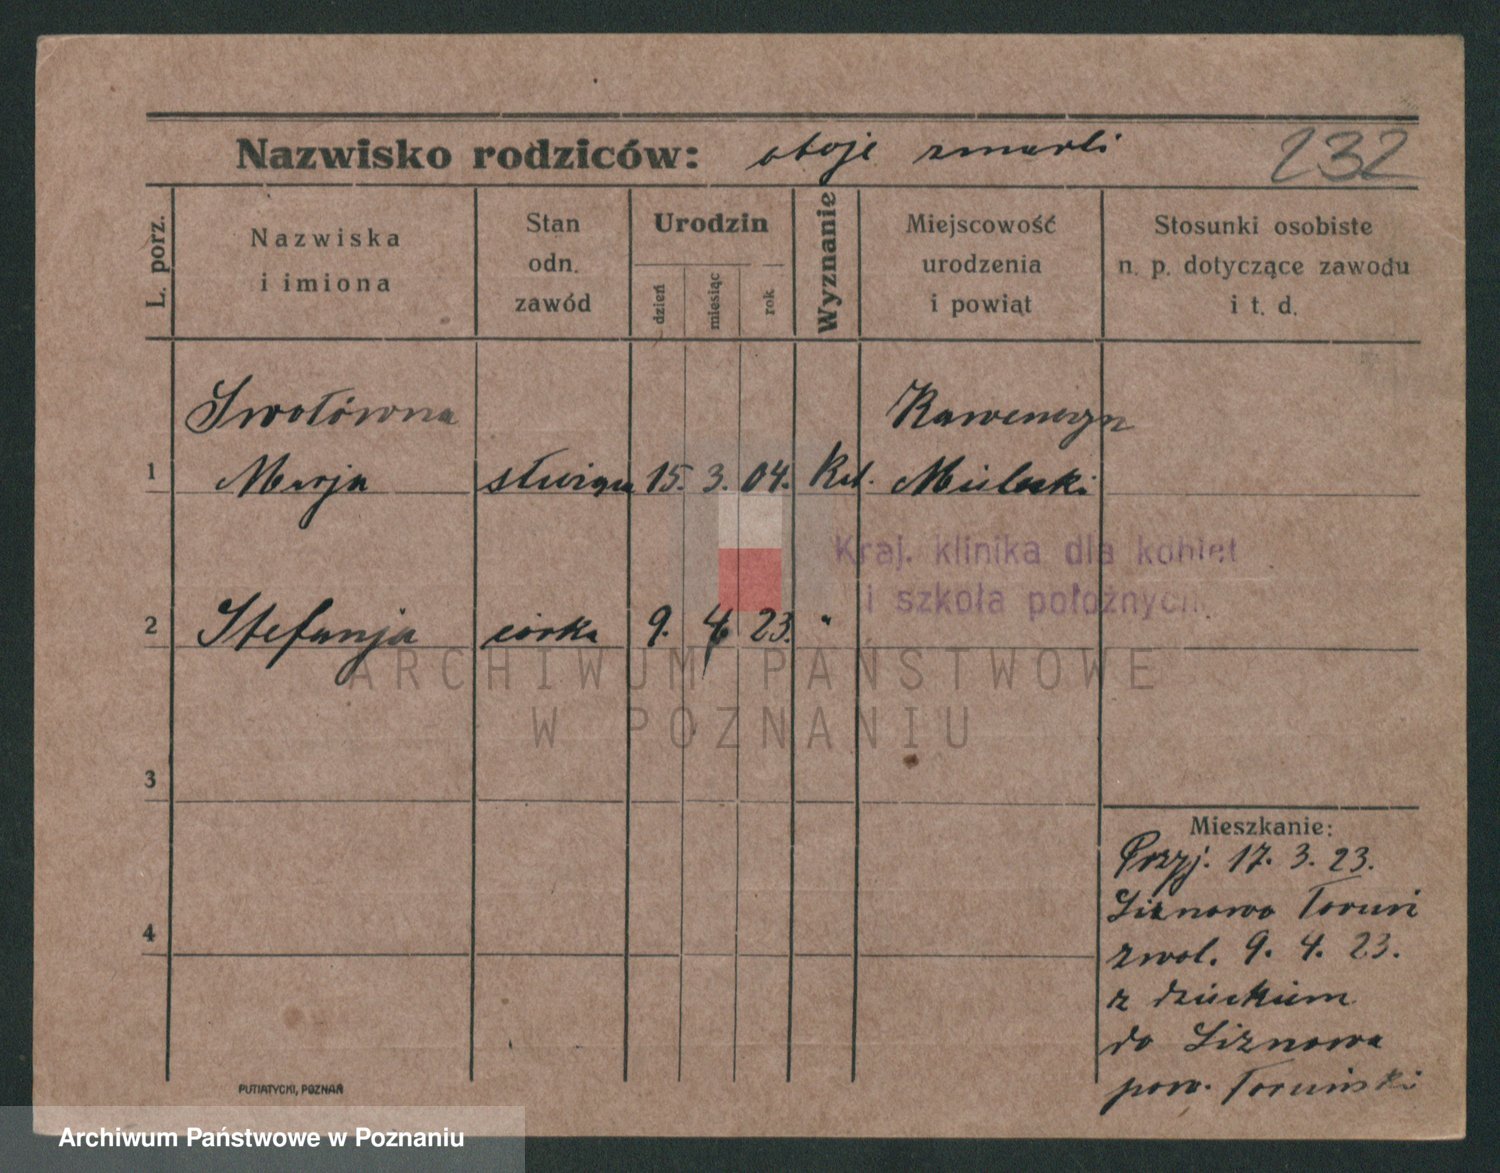 Nazwisko rodziców: oboje zmarli 232
L. porz.
Nazwiska
i imiona
Stan
odn.
zawód
Urodzin
dzień
miesiąc
rok
Wyznanie
Miejscowość
urodzenia
i powiąt
Stosunki osobiste
n. p. dotyczące zawodu
i t. d.
Swołówna
1 Marja służąca 15. 3. 04. Kat. Mielecki
Kraj. klinika dla kobiet
i szkoła położnych
2 Stefanja córka 9. 4. 23. "
ARCHIWUM PAŃSTWOWE
W POZNANIU
3
4
Mieszkanie:
Przyj. 17. 3. 23.
Liznowo Toruń
zwol. 9. 4. 23.
z dzieckiem
do Liznowa
pow. Toruński
PUTIATYCKI, POZNAŃ
Archiwum Państwowe w Poznaniu